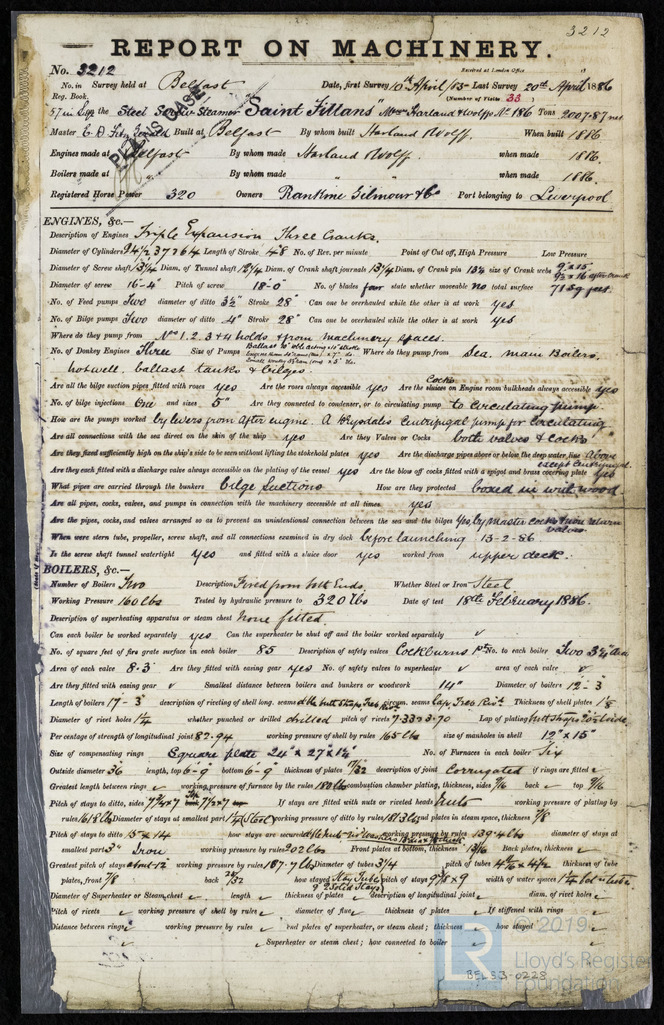 3212
REPORT ON MACHINERY.
No. 3212
Received at London Office
No. in Survey held at Belfast Date, first Survey 10th April /85 Last Survey 20th April 1886
Reg. Book. (Number of Visits 33)
57 in Sup the Steel Screw Steamer "Saint Fillans" Messrs Harland & Wolffs No 186 Tons 2007.87 net
Master Built at Belfast By whom built Harland & Wolff. When built 1886.
Engines made at Belfast By whom made Harland & Wolff. when made 1886.
Boilers made at " By whom made " " when made 1886.
Registered Horse Power 320 Owners Rankine Gilmour & Co Port belonging to Liverpool
ENGINES, &c.—
Description of Engines Triple Expansion Three Cranks.
Diameter of Cylinders 24½ 37 & 64 Length of Stroke 48 No. of Rev. per minute Point of Cut off, High Pressure Low Pressure
Diameter of Screw shaft 13¼ Diam. of Tunnel shaft 12¼ Diam. of Crank shaft journals 13¼ Diam. of Crank pin 13¼ size of Crank webs 9 x 15
9½ x 16 after crank
Diameter of screw 16-4" Pitch of screw 18-0" No. of blades four state whether moveable no total surface 71 sq feet.
No. of Feed pumps Two diameter of ditto 3½" Stroke 28" Can one be overhauled while the other is at work yes
No. of Bilge pumps Two diameter of ditto 4" Stroke 28" Can one be overhauled while the other is at work yes
Where do they pump from Nos 1. 2. 3 & 4 holds & from machinery spaces.
No. of Donkey Engines Three Size of Pumps Where do they pump from Sea, main Boilers,
hotwell, ballast tanks & bilges.
Are all the bilge suction pipes fitted with roses yes Are the roses always accessible yes Are the sluices on Engine room bulkheads always accessible yes
Cocks
No. of bilge injections One and sizes 5" Are they connected to condenser, or to circulating pump to circulating pump.
How are the pumps worked by levers from After engine. A Centrifugal pump for circulating
Are all connections with the sea direct on the skin of the ship yes Are they Valves or Cocks both valves & cocks
Are they fixed sufficiently high on the ship's side to be seen without lifting the stokehold plates yes Are the discharge pipes above or below the deep water line Above
except Centrifugal
Are they each fitted with a discharge valve always accessible on the plating of the vessel yes Are the blow off cocks fitted with a spigot and brass covering plate yes
What pipes are carried through the bunkers Bilge Suctions How are they protected boxed in with wood
Are all pipes, cocks, valves, and pumps in connection with the machinery accessible at all times yes
Are the pipes, cocks, and valves arranged so as to prevent an unintentional connection between the sea and the bilges Yes, by master cocks & non return
valves.
When were stern tube, propeller, screw shaft, and all connections examined in dry dock before launching 13-2-86
Is the screw shaft tunnel watertight yes and fitted with a sluice door yes worked from upper deck.
BOILERS, &c.—
Number of Boilers Two Description Fired from both Ends Whether Steel or Iron Steel
Working Pressure 160 lbs Tested by hydraulic pressure to 320 lbs Date of test 18th February 1886.
Description of superheating apparatus or steam chest None fitted.
Can each boiler be worked separately yes Can the superheater be shut off and the boiler worked separately ✓
No. of square feet of fire grate surface in each boiler 85 Description of safety valves Cockburns Pt No. to each boiler Two 3¼ dia
Area of each valve 8.3 Are they fitted with easing gear yes No. of safety valves to superheater ✓ area of each valve ✓
Are they fitted with easing gear ✓ Smallest distance between boilers and bunkers or woodwork 14" Diameter of boilers 12-3
Length of boilers 17-3" description of riveting of shell long. seams dble butt straps, Treb Rivt. circum. seams Lap, Treb Rivt. Thickness of shell plates 1⅛
Diameter of rivet holes 1¼ whether punched or drilled drilled pitch of rivets 7.33 & 3.70 Lap of plating butt straps
Percentage of strength of longitudinal joint 82.94 working pressure of shell by rules 165 lbs size of manholes in shell 12" x 15"
Size of compensating rings Square plate 24" x 27" x 1¼" No. of Furnaces in each boiler Six
Outside diameter 36 length, top 6-9 bottom 6-9" thickness of plates 17/32 description of joint Corrugated if rings are fitted ✓
Greatest length between rings ✓ working pressure of furnace by the rules 180 lbs combustion chamber plating, thickness, sides 9/16 back ✓ top 9/16
Pitch of stays to ditto, sides 7¾ x 7 back 7½ x 7 top If stays are fitted with nuts or riveted heads Nuts working pressure of plating by
rules 161.8 lbs Diameter of stays at smallest part 1¼ (Steel) working pressure of ditto by rules 181.3 lbs end plates in steam space, thickness ⅞
Pitch of stays to ditto 15 x 14 how stays are secured working pressure by rules 139.4 lbs diameter of stays at
smallest part 3" Iron working pressure by rules 202 lbs Front plates at bottom, thickness 13/16 Back plates, thickness ✓
Greatest pitch of stays about 12 working pressure by rules 187.7 lbs Diameter of tubes 3¼ pitch of tubes 4 9/16 x 4½ thickness of tube
plates, front ⅞ back 26/32 how stayed Stay Tubes pitch of stays 9⅛ x 9 width of water spaces 1¼
9 2 Solid Stays
Diameter of Superheater or Steam chest ✓ length ✓ thickness of plates ✓ description of longitudinal joint ✓ diam. of rivet holes ✓
Pitch of rivets ✓ working pressure of shell by rules ✓ diameter of flue ✓ thickness of plates ✓ If stiffened with rings ✓
Distance between rings ✓ working pressure by rules ✓ end plates of superheater, or steam chest; thickness ✓ how stayed ✓
✓ Superheater or steam chest; how connected to boiler ✓
BELS3-0228
LR
© 2019
Lloyd's Register
Foundation